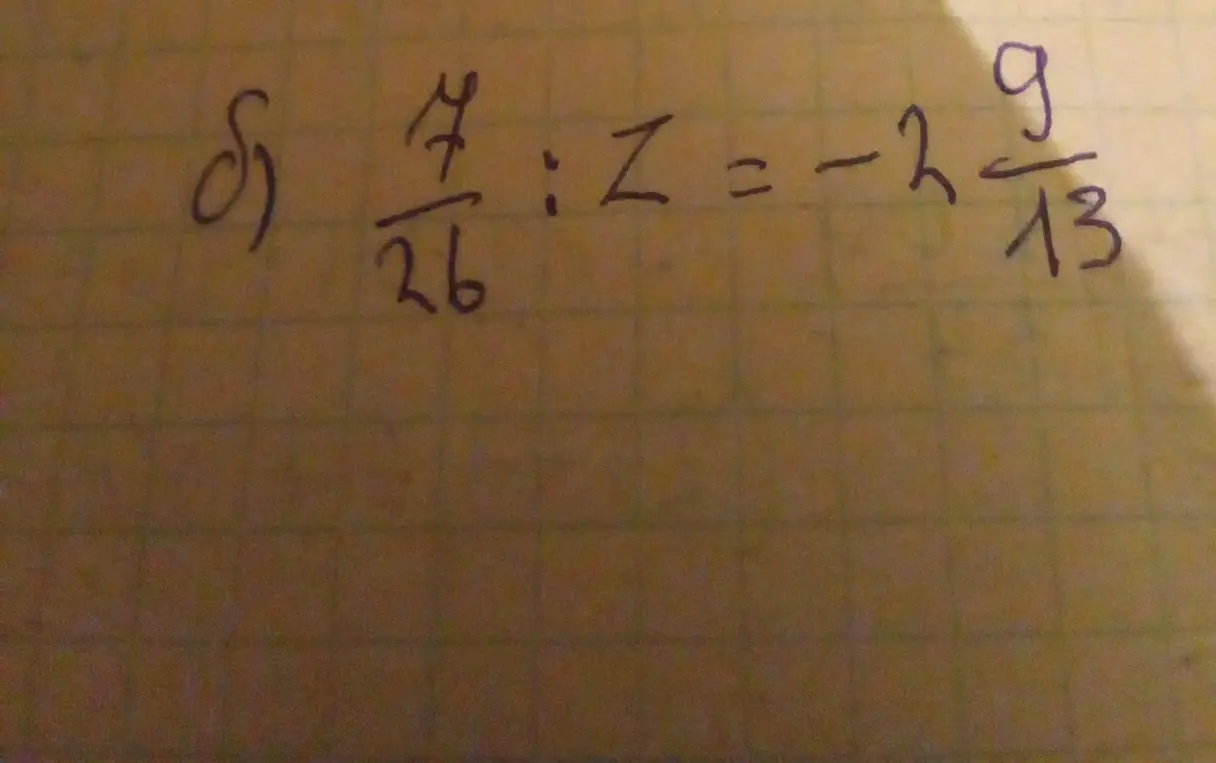 б) 7/26 : Z = -2 9/13